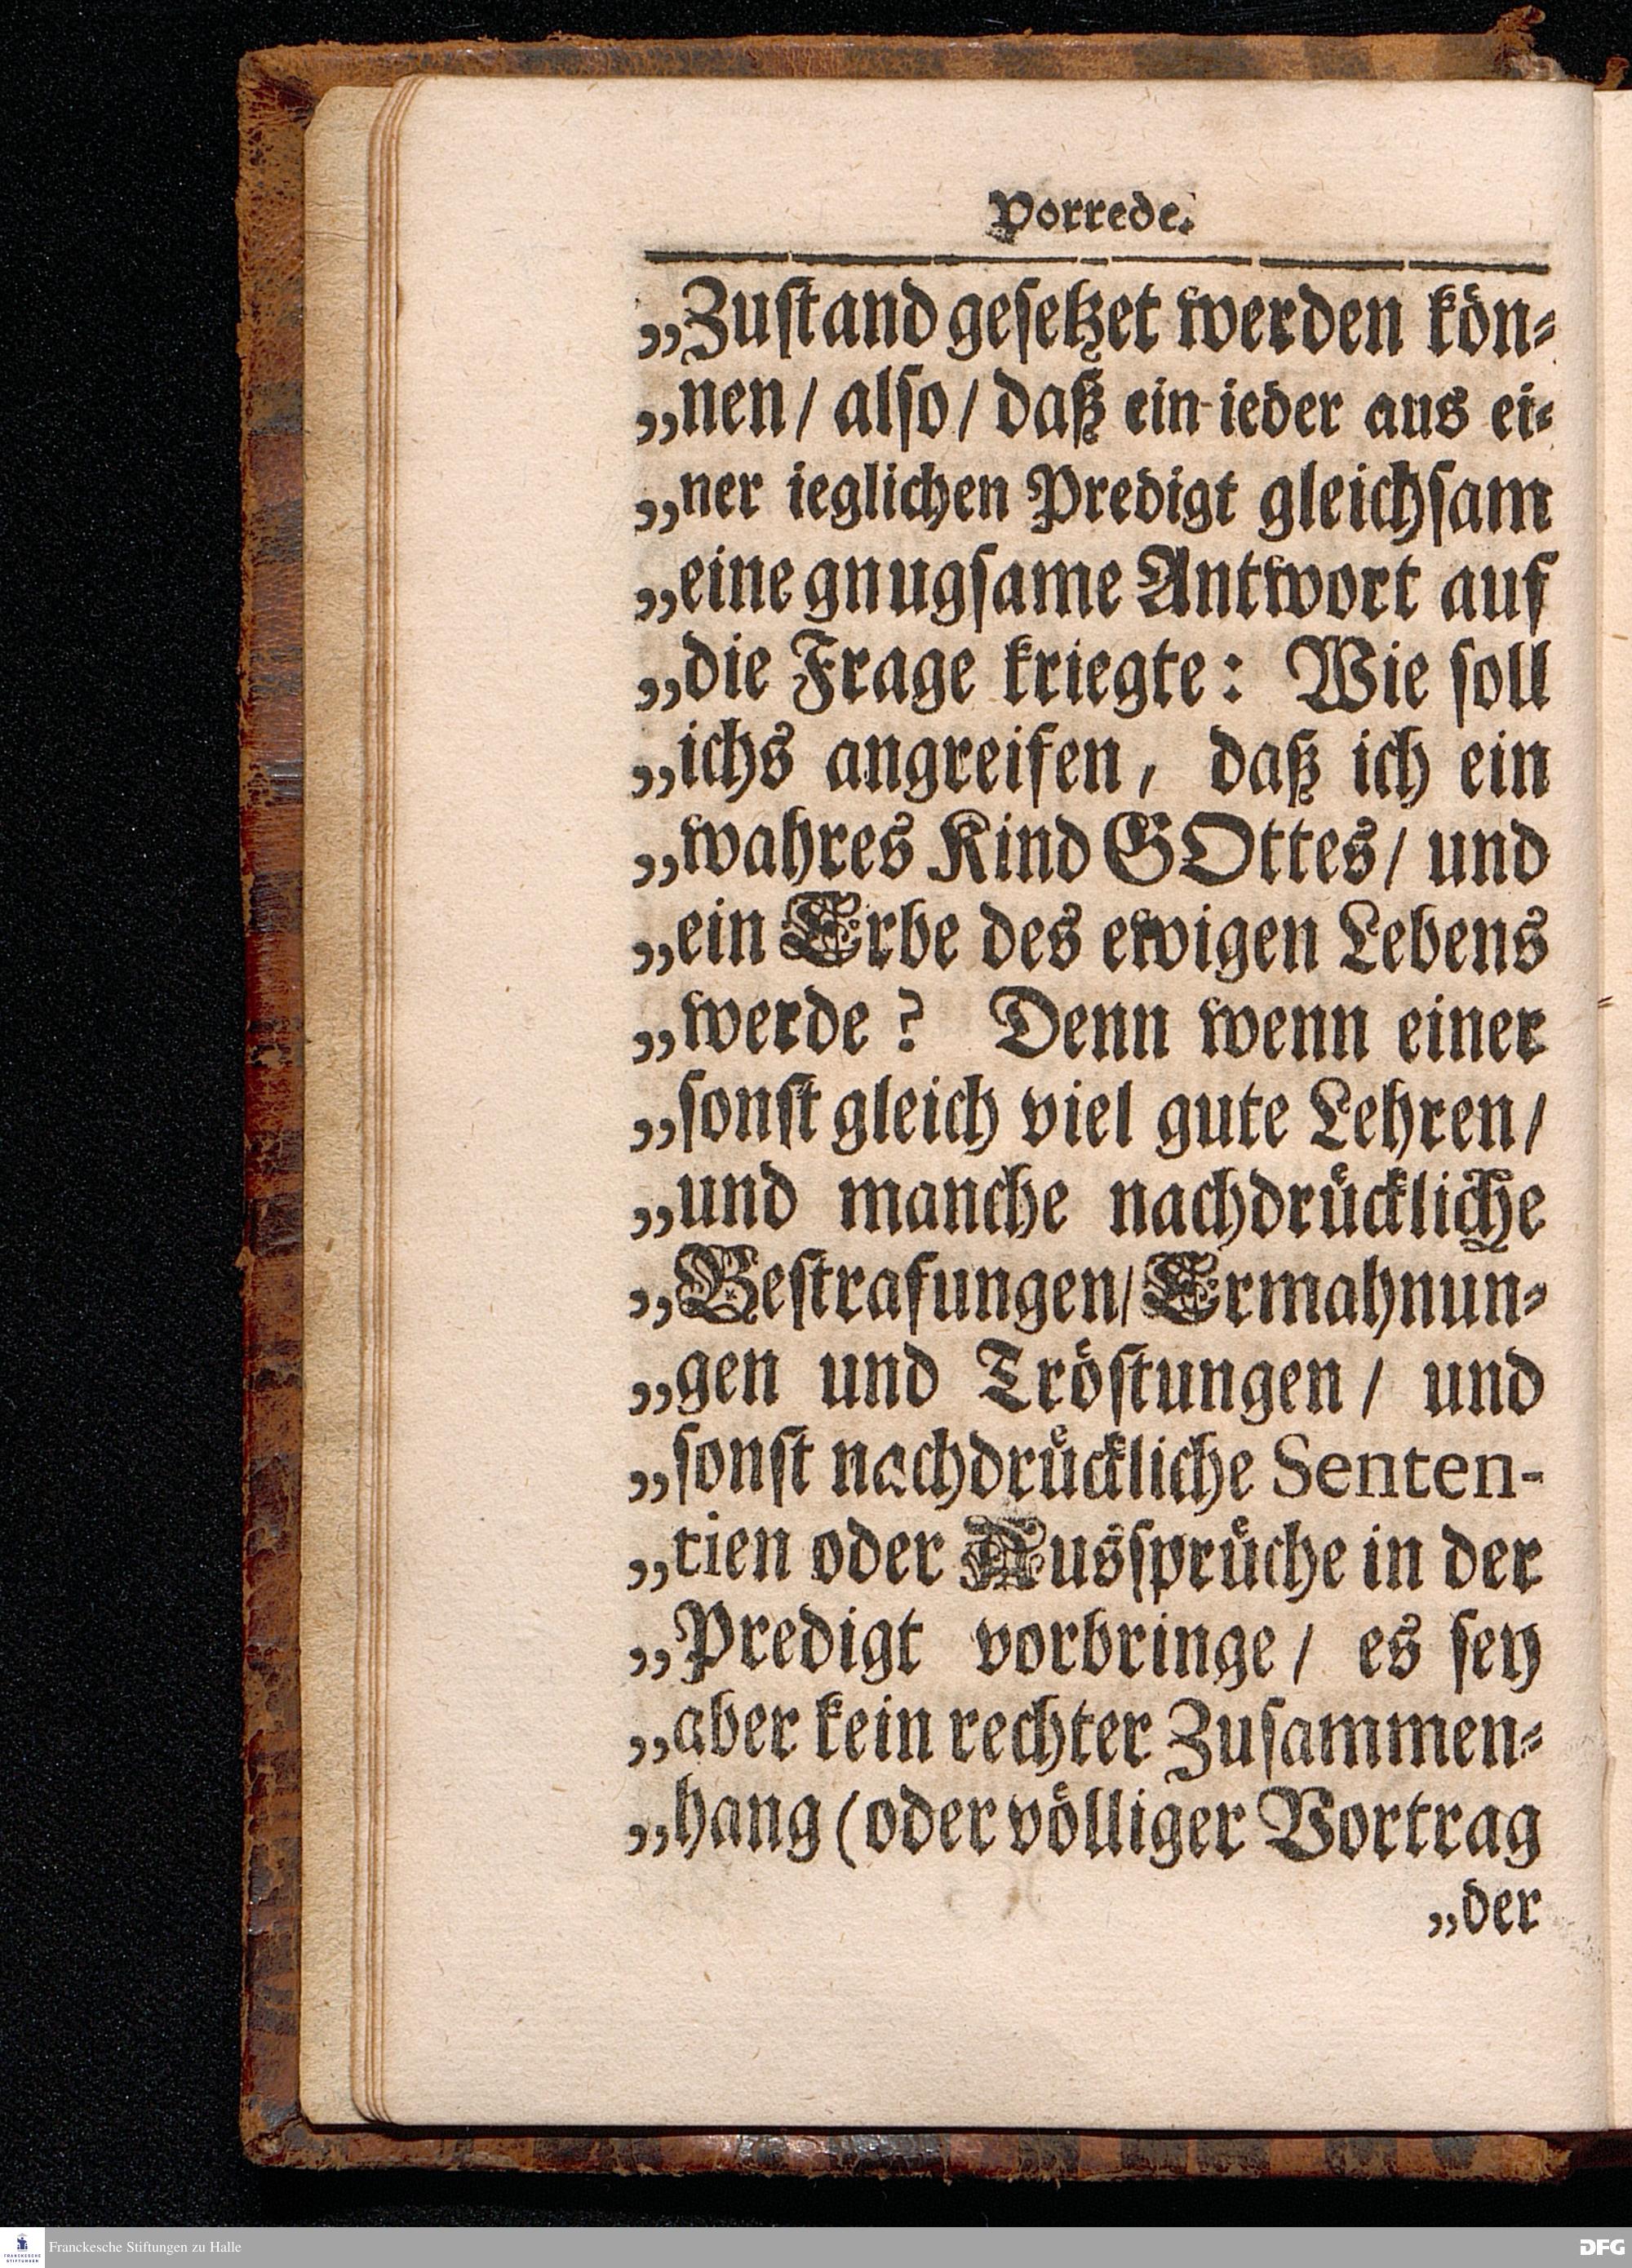 Vorrede.
„Zuſtand geſetzet werden kön-
„nen/ alſo/ daß ein ieder aus ei-
„ner ieglichen Predigt gleichſam
„eine gnugſame Antwort auf
„die Frage kriegte: Wie ſoll
„ichs angreifen, daß ich ein
„wahres Kind GOttes/ und
„ein Erbe des ewigen Lebens
„werde? Denn wenn einer
„ſonſt gleich viel gute Lehren/
„und manche nachdrückliche
„Beſtrafungen/ Ermahnun-
„gen und Tröſtungen/ und
„ſonſt nachdrückliche Senten-
„tien oder Ausſprüche in der
„Predigt vorbringe/ es ſey
„aber kein rechter Zuſammen-
„hang (oder völliger Vortrag
„der
FRANCKESCHE STIFTUNGEN
Franckesche Stiftungen zu Halle
DFG